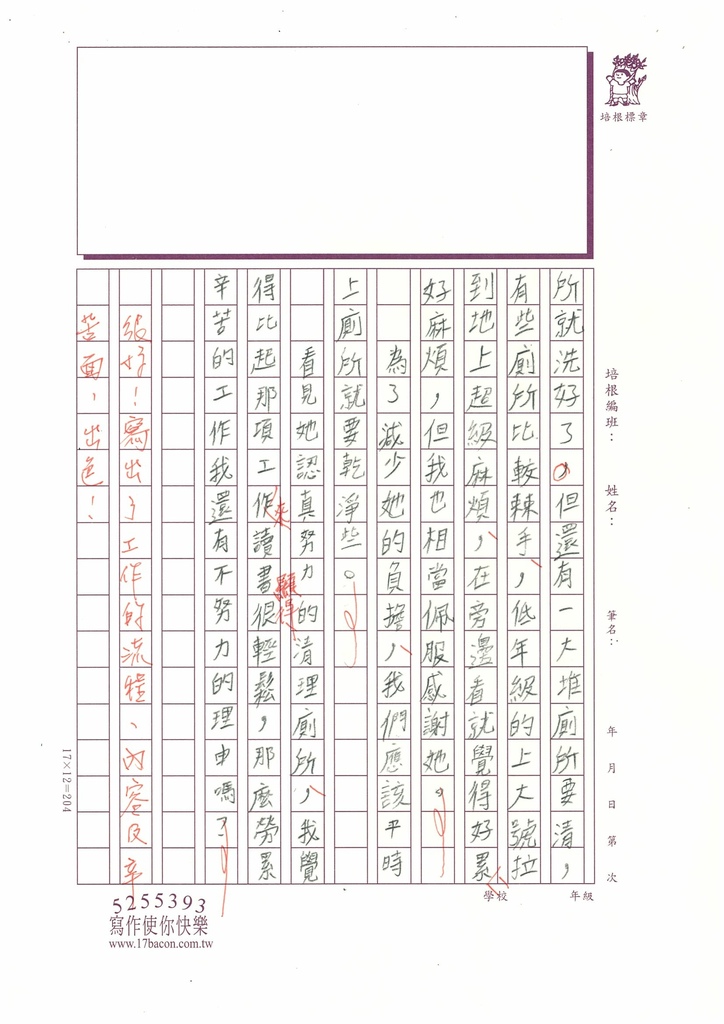 培根標章
培根編班：
姓名：
筆名：
年　月　日　第　次
學校
年級
所就洗好了。但還有一大堆廁所要清，
有些廁所比較棘手，低年級的上大號拉
到地上超級麻煩，在旁邊看就覺得好累
好麻煩，但我也相當佩服感謝她。
為了減少她的負擔，我們應該平時
上廁所就要乾淨些。
看見她認真努力的清理廁所，我覺
得比起那項工作讀書很輕鬆，那麼勞累
來
顯得
辛苦的工作我還有不努力的理由嗎？
很好！寫出了工作的流程、內容及辛
苦面，出色！
17×12=204
5255393
寫作使你快樂
www.17bacon.com.tw